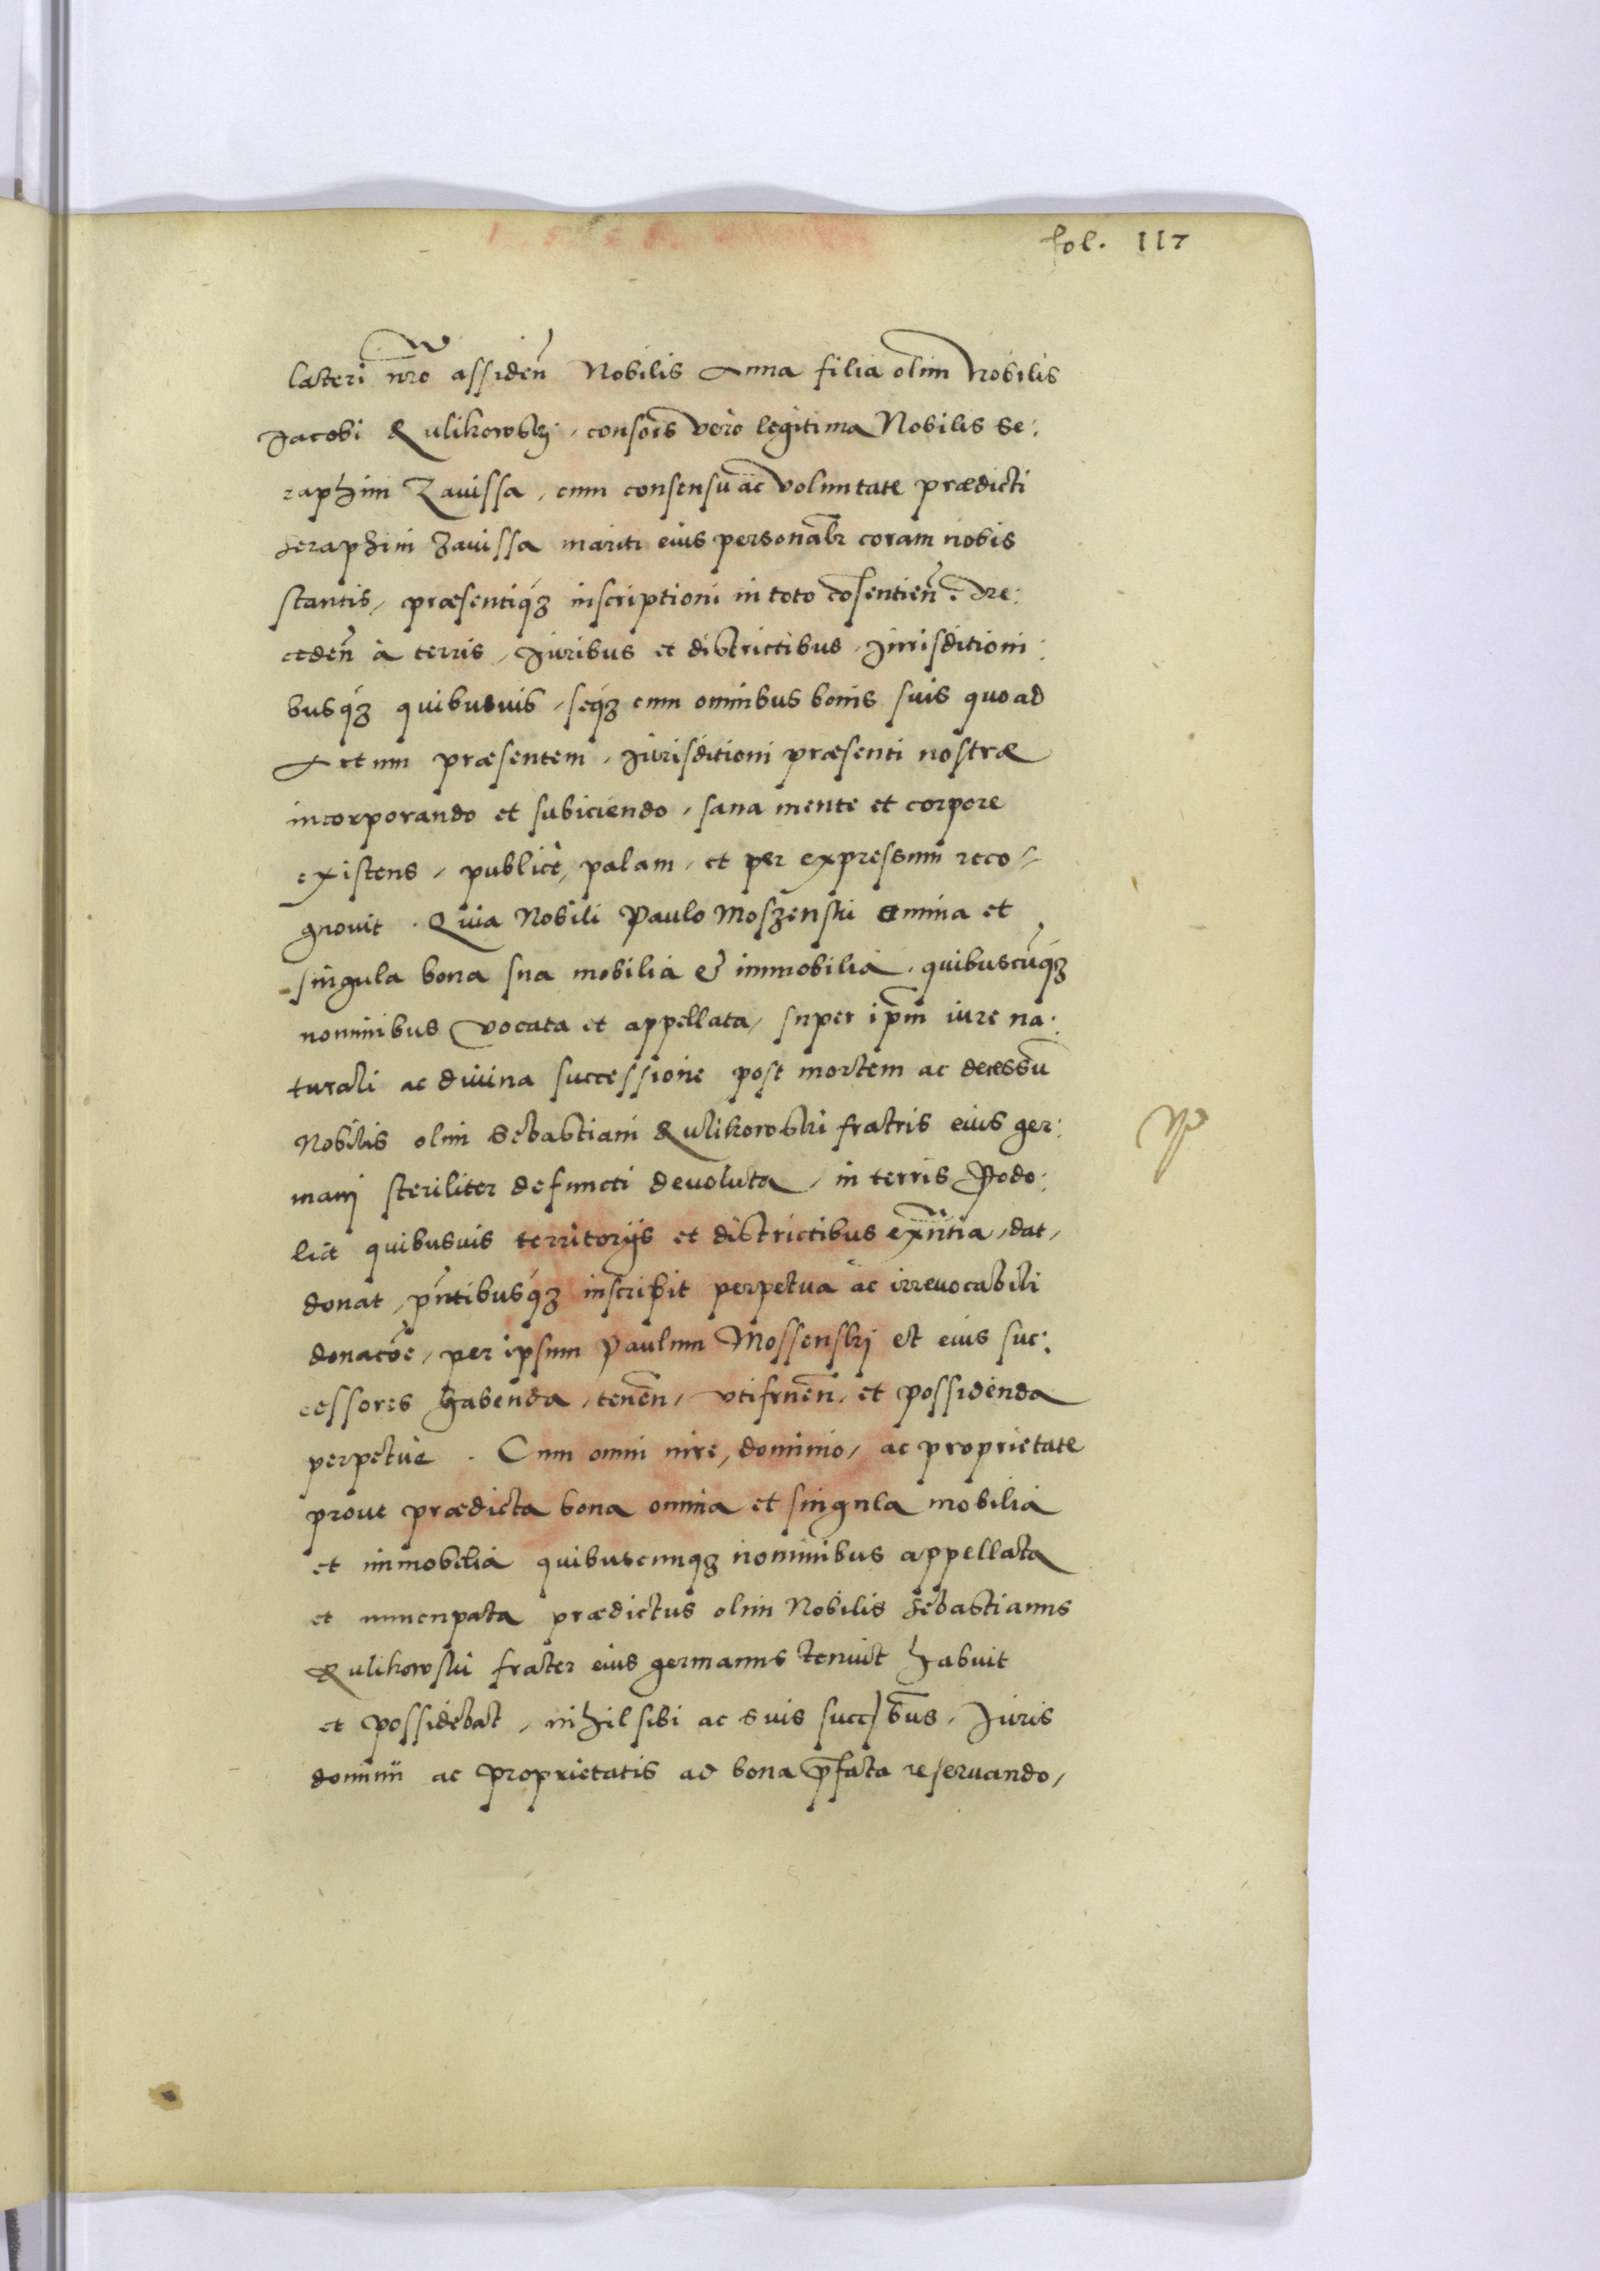 fol. 117
lateri nr̃o assideñ Nobilis Anna filia olim Nobilis
Jacobi Kulikowskj, consors vero legitima Nobilis Se:
raphim Zauissa, cum consensu ac voluntate prædicti
Seraphin Zauissa mariti eius personalr̃ coram nobis
stantis, præsentiq́ꝫ inscriptioni in toto cōsentieñ. Re:
cedeñ à terris, Juribus et districtibus, Jurisditioni:
busq́ꝫ quibusuis, seq́ꝫ cum omnibus bonis suis quo ad
Actum præsentem, Jurisditioni præsenti nostræ
incorporando et subiciendo, sana mente et corpore
existens, publicè, palam, et per expressum reco=
gnouit. Quia Nobili Paulo Moszenski omnia et
singula bona sua mobilia & immobilia, quibuscũq́ꝫ
nominibus vocata et appellata, super ip̃m iure na:
turali ac diuina successione post mortem ac decessũ
Nobilis olim Sebastiani Kulikowski fratris eius ger:
mani steriliter defuncti deuoluta, in terris Podo:
liæ quibusuis territorijs et districtibus exñtia, dat,
donat, pñtibusq́ꝫ inscribit perpetua ac irreuocabili
donacõe, per ipsum Paulum Mossenskj et eius suc:
cessores habenda, teneñ, vtifrueñ, et possidenda
perpetuè. Cum omni iure, dominio, ac proprietate
prout prædicta bona omnia et singula mobilia
et immobilia quibuscunqꝫ nominibus appellata
et nuncupata prædictus olim Nobilis Sebastianus
Kulikowski frater eius germanus tenuit habuit
et possidebat, nihil sibi ac suis succ̃bus, Juris
dominii ac proprietatis ad bona p̃fata reseruando,